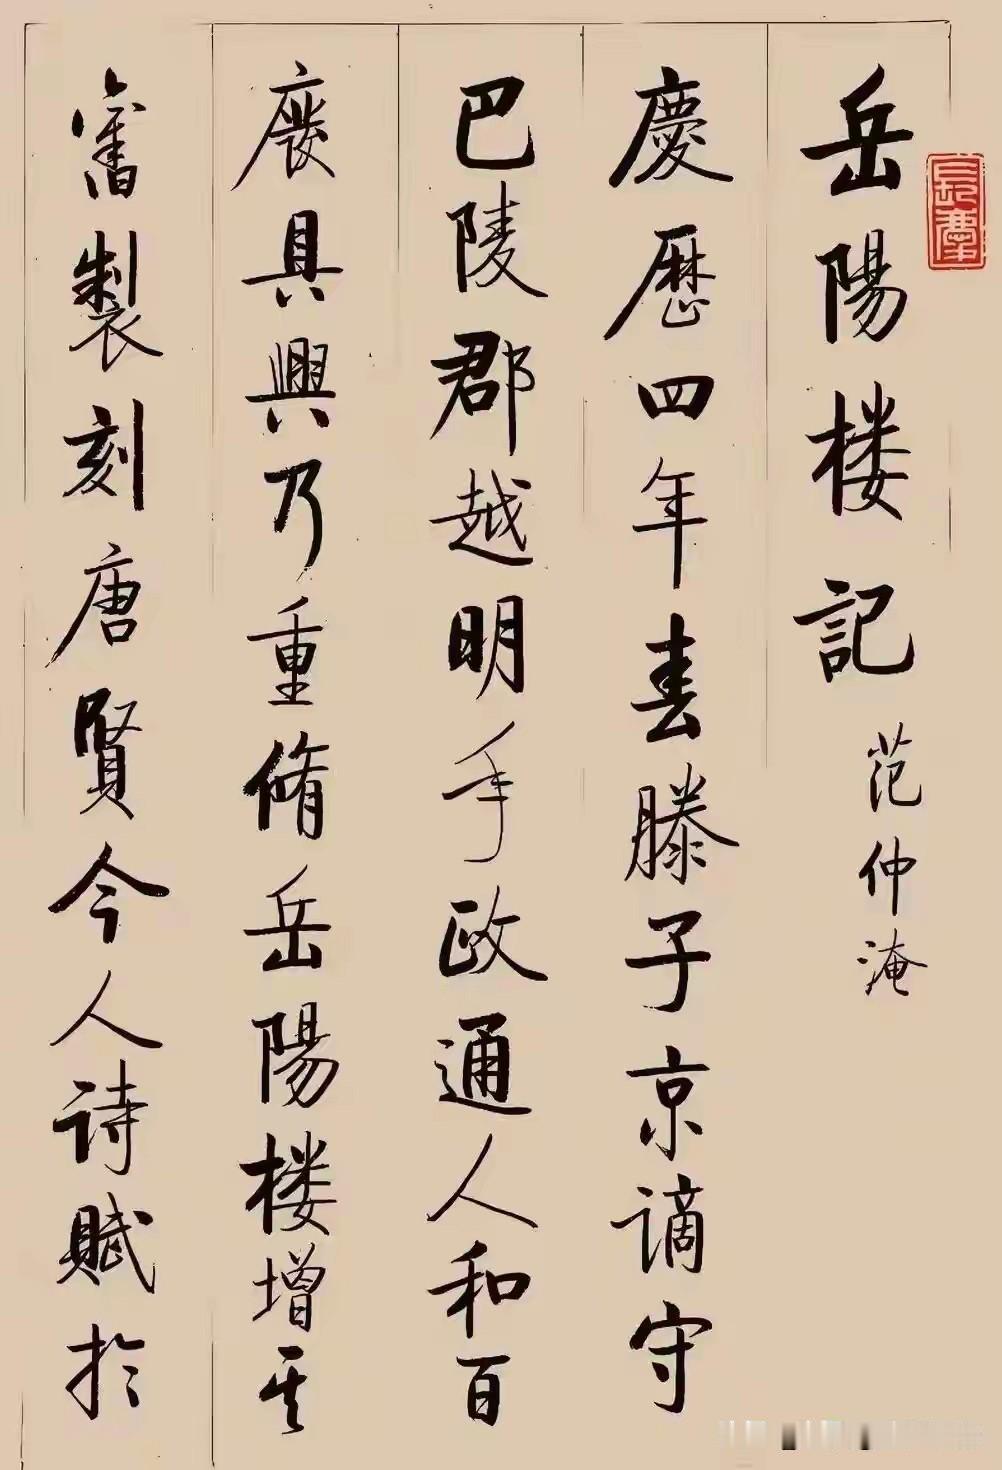 岳陽楼記
范仲淹
慶歷四年春滕子京謫守
巴陵郡越明年政通人和百
廢具興乃重脩岳陽楼增其
舊製刻唐賢今人詩賦於